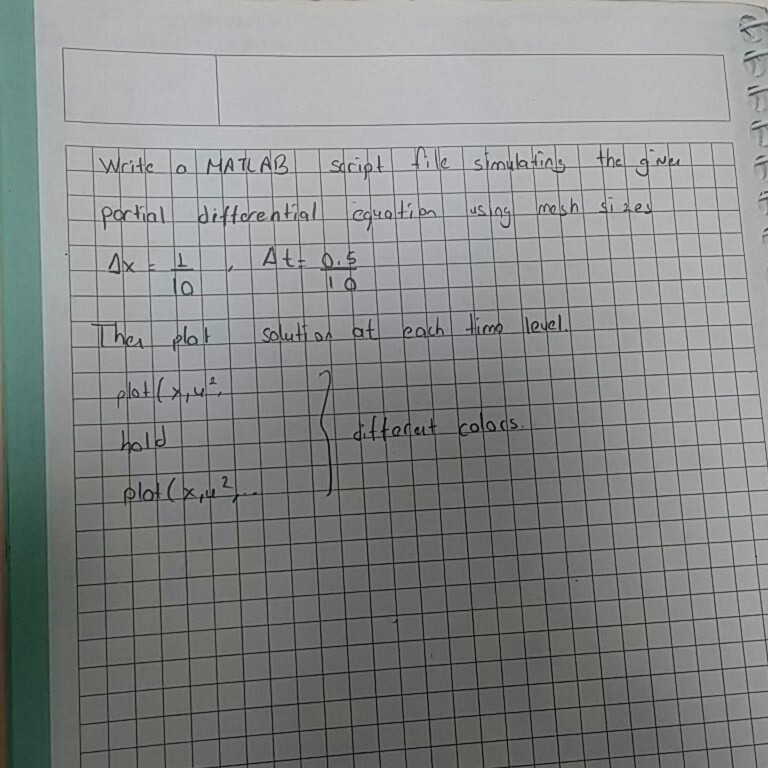 Write a MATLAB script file simulating the given
partial differential equation using mesh sizes
Δx = 1/10 , Δt = 0.5/10
Then plot solution at each time level.
plot(x,u²,
hold
different colors.
plot(x,u²,...